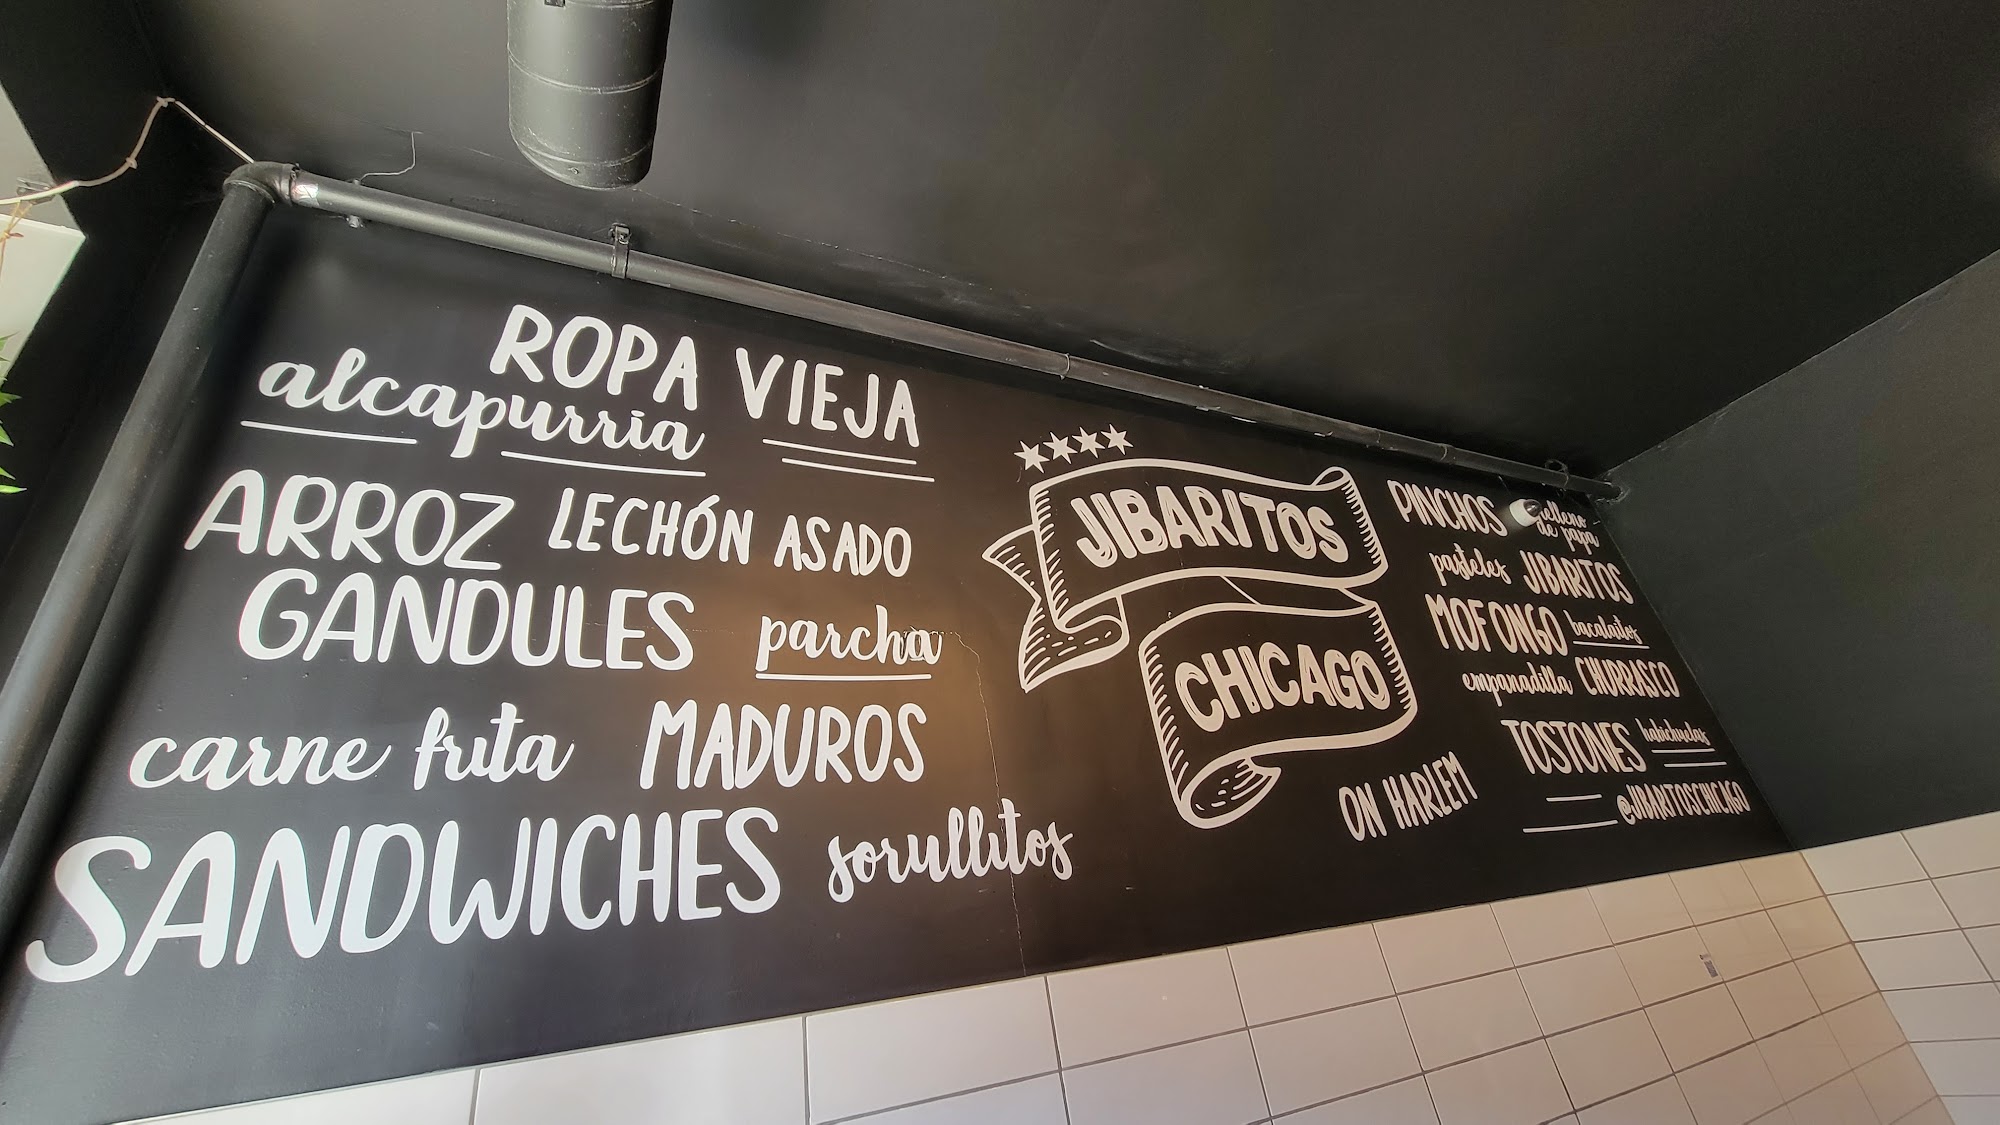 ROPA VIEJA
alcapurria
ARROZ LECHÓN ASADO
GANDULES parcha
carne frita MADUROS
SANDWICHES sorullitos
JIBARITOS
CHICAGO
ON HARLEM
PINCHOS relleno
de papa
pasteles JIBARITOS
MOFONGO bacalaitos
empanadilla CHURRASCO
TOSTONES habichuelas
@JIBARITOSCHICAGO